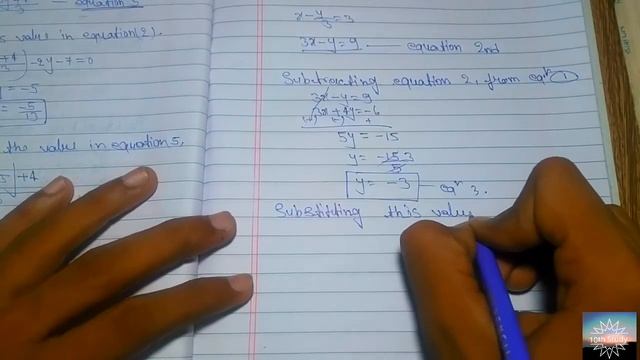 equation 3
s value in equation(2).
-2y-7=0
y = -5
= -5/13
the value in equation 5,
+4
x - y/3 = 3
3x-y=9 —— equation 2nd
Subtracting equation 2, from eqⁿ ①
3x-y=9
3x+4y=-6
(-) (-) +
5y = -15
y = -15 3
5
y = -3 — eqⁿ 3.
Substitting this value
10th Study